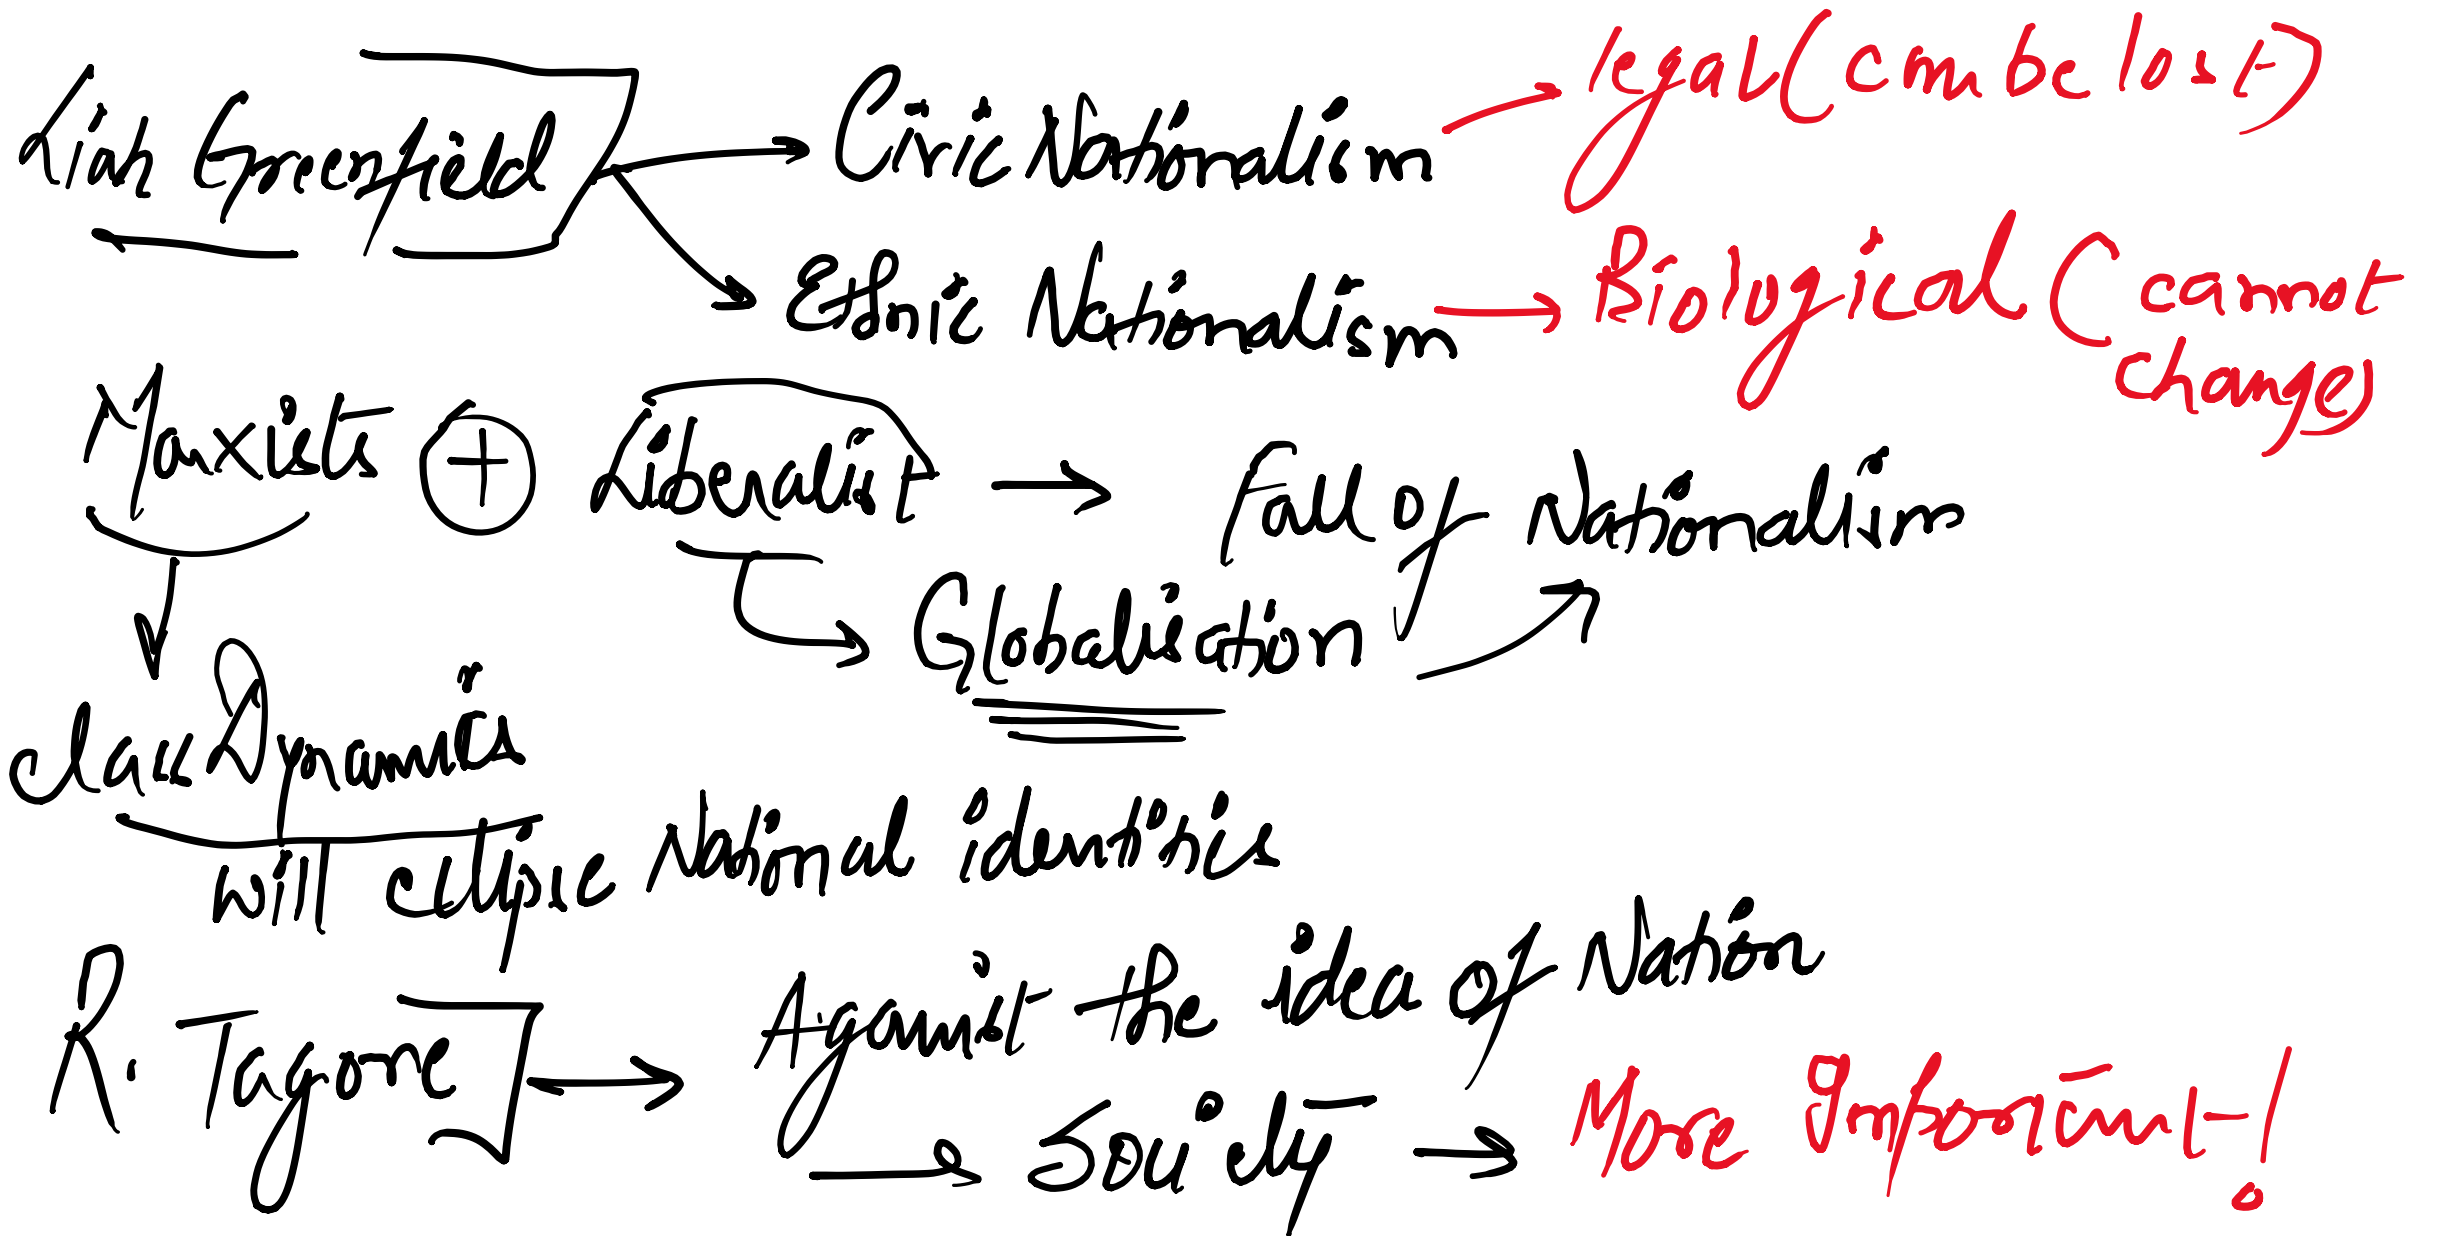 Liah Greenfield → Civic Nationalism → legal (can be lost)
→ Ethnic Nationalism → Biological (cannot change)
Marxists + Liberalist → Fall of Nationalism
→ Globalisation
Class Dynamics
will ellipse National identities
R. Tagore → Against the idea of Nation
→ Society → More Important!